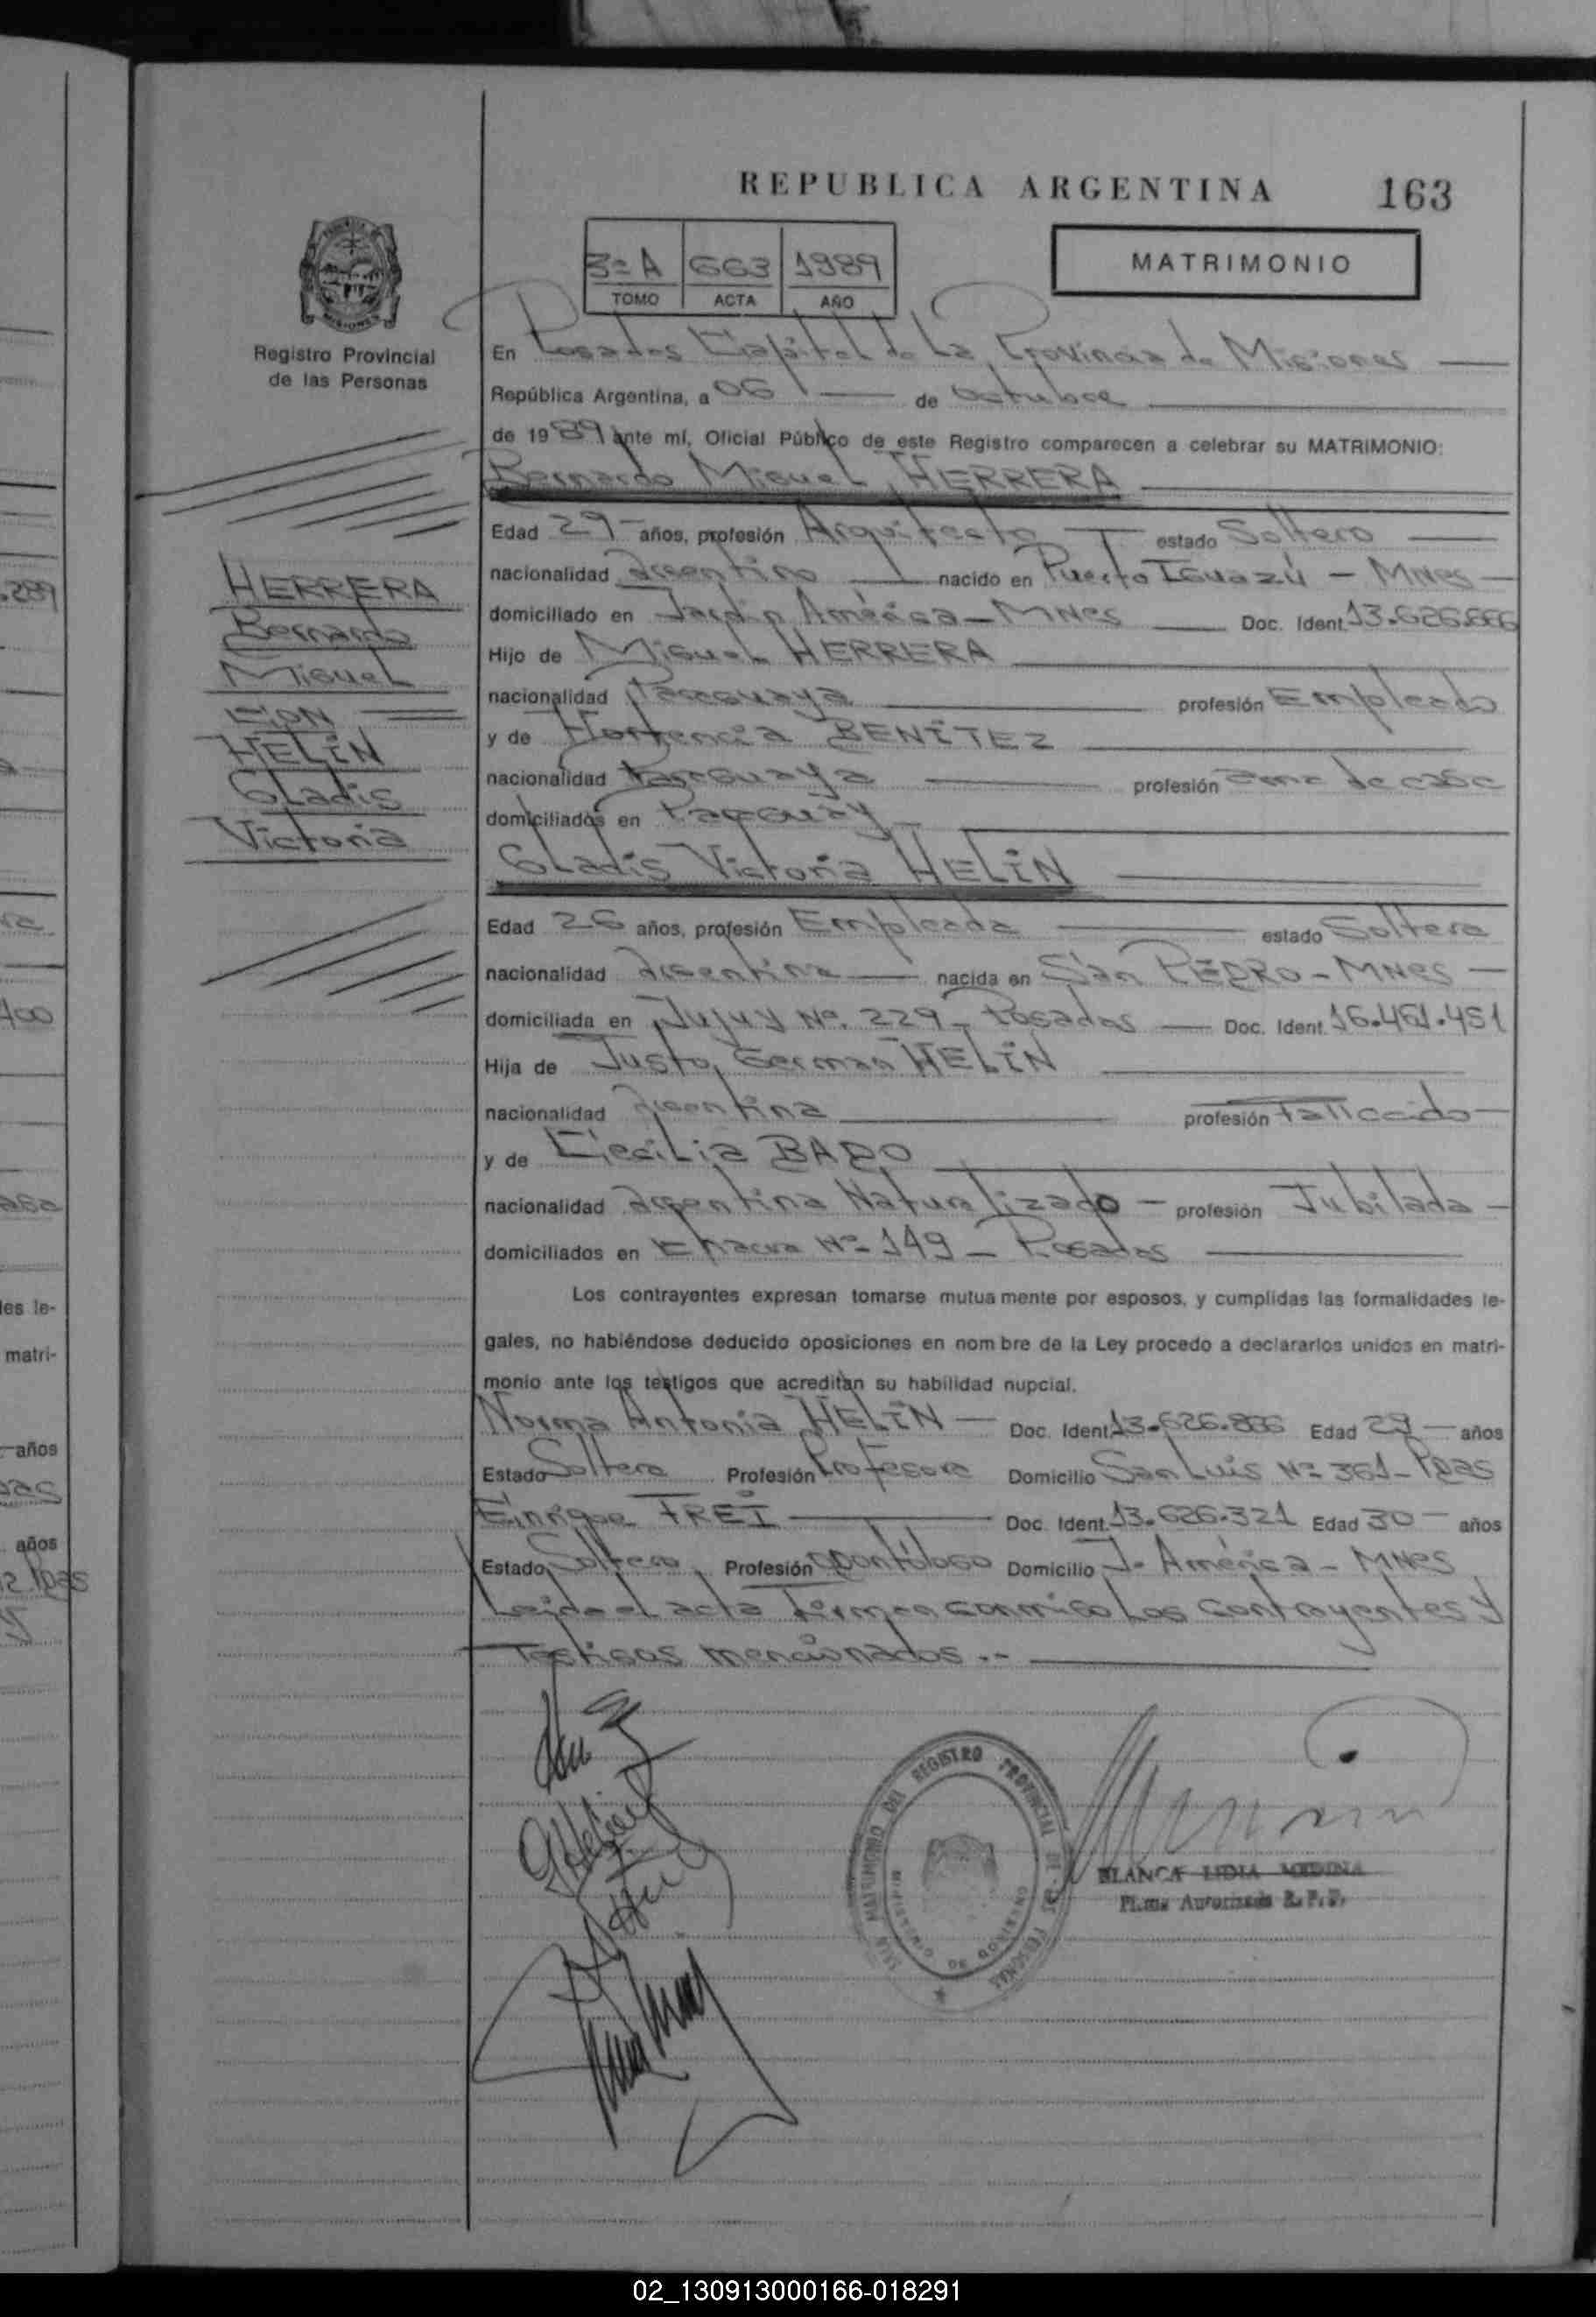 REPUBLICA ARGENTINA 163
3º A 663 1989
TOMO ACTA AÑO
MATRIMONIO
MISIONES
Registro Provincial
de las Personas
HERRERA
Bernardo
Miguel
CON
HELIN
Gladis
Victoria
En Posadas Capital de La Provincia de Misiones
República Argentina, a 06 de Octubre
de 1989 ante mí, Oficial Público de este Registro comparecen a celebrar su MATRIMONIO:
Bernardo Miguel HERRERA
Edad 29 años, profesión Arquitecto estado Soltero
nacionalidad Argentino nacido en Puerto Iguazú - MNes
domiciliado en Jardín América - MNes Doc. Ident. 13.626.886
Hijo de Miguel HERRERA
nacionalidad Paraguaya profesión Empleado
y de Hortencia BENITEZ
nacionalidad Paraguaya profesión ama de casa
domiciliados en Paraguay
Gladis Victoria HELIN
Edad 26 años, profesión Empleada estado Soltera
nacionalidad Argentina nacida en San PEDRO - MNes
domiciliada en Jujuy Nº. 229 - Posadas Doc. Ident. 16.461.451
Hija de Justo German HELIN
nacionalidad Argentina profesión Fallecido
y de Cecilia BADO
nacionalidad Argentina Naturalizado - profesión Jubilada
domiciliados en Chacra Nº 149 - Posadas
Los contrayentes expresan tomarse mutuamente por esposos, y cumplidas las formalidades le-
gales, no habiéndose deducido oposiciones en nombre de la Ley procedo a declararlos unidos en matri-
monio ante los testigos que acreditan su habilidad nupcial.
Norma Antonia HELIN Doc. Ident. 13.626.866 Edad 29 años
Estado Soltera Profesión Profesora Domicilio San Luis Nº 361 - Pdas
Enrique FREI Doc. Ident. 13.626.321 Edad 30 años
Estado Soltero Profesión Odontólogo Domicilio J. América - MNes
Leida el acta firman conmigo Los Contrayentes y
Testigos mencionados..
MATRIMONIO DEL REGISTRO PROVINCIAL DE LAS PERSONAS
BLANCA LIDIA MEDINA
Firma Autorizada R. P. P.
289
400
les le-
matri-
años
años
02_130913000166-018291